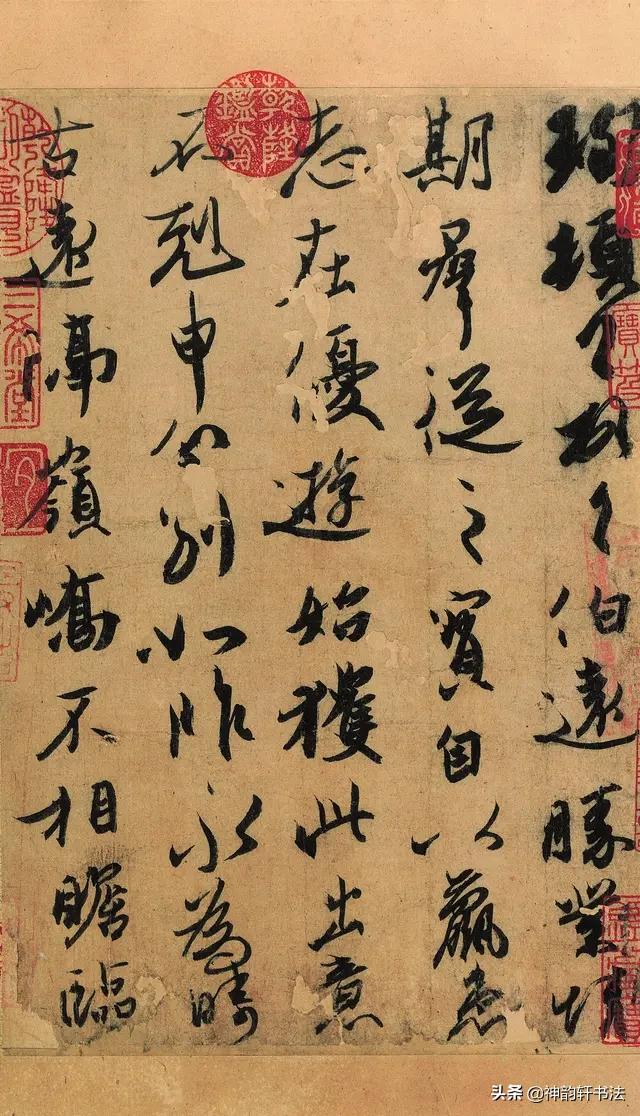 珣頓首頓首伯遠勝業情
期群從之寶自以羸患
志在優遊始獲此出意
不剋申分別如昨永為疇
古遠隔嶺嶠不相瞻臨
乾隆鑑賞
三希堂
頭条 @神韵轩书法